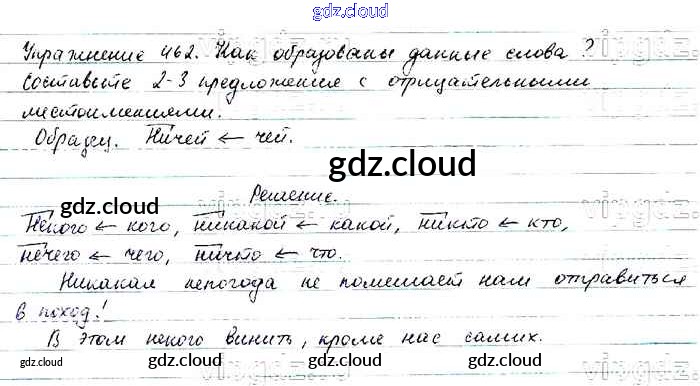 gdz.cloud
Упражнение 462. Как образованы данные слова?
Составьте 2-3 предложения с отрицательными
местоимениями.
Образец. Ничей ← чей.
gdz.cloud
Решение.
gdz.cloud
Некого ← кого, никакой ← какой, никто ← кто,
нечего ← чего, ничто ← что.
Никакая непогода не помешает нам отправиться
в поход!
В этом некого винить, кроме нас самих.
gdz.cloud gdz.cloud gdz.cloud gdz.cloud gdz.cloud